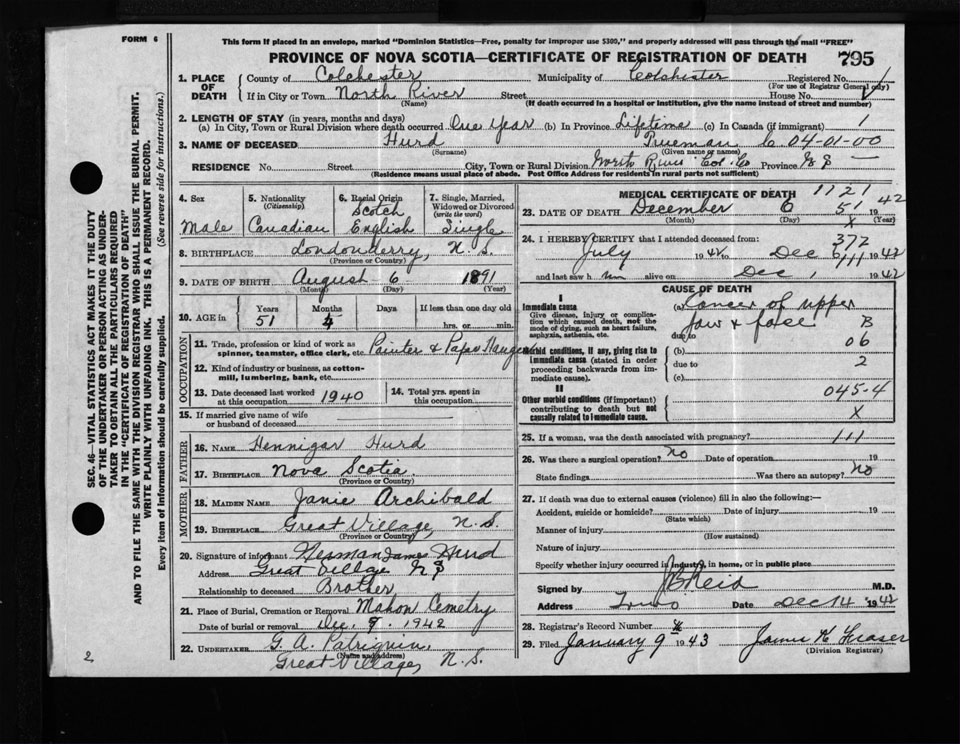 FORM 6
This form if placed in an envelope, marked "Dominion Statistics—Free, penalty for improper use $300," and properly addressed will pass through the mail "FREE"
PROVINCE OF NOVA SCOTIA—CERTIFICATE OF REGISTRATION OF DEATH 795
1. PLACE OF DEATH County of Colchester Municipality of Colchester Registered No.
(For use of Registrar General only)
If in City or Town North River Street House No.
(Name) (If death occurred in a hospital or institution, give the name instead of street and number)
2. LENGTH OF STAY (in years, months and days)
(a) In City, Town or Rural Division where death occurred One Year (b) In Province Lifetime (c) In Canada (if immigrant) 1
3. NAME OF DECEASED Hurd Trueman C 04-01-00
(Surname) (Given name or names)
RESIDENCE No. Street City, Town or Rural Division North River Col. Co Province N S
(Residence means usual place of abode. Post Office Address for residents in rural parts not sufficient)
4. Sex Male
5. Nationality (Citizenship) Canadian
6. Racial Origin Scotch English
7. Single, Married, Widowed or Divorced (write the word) Single
8. BIRTHPLACE Londonderry, N. S.
(Province or Country)
9. DATE OF BIRTH August 6 1891
(Month) (Day) (Year)
10. AGE in Years 51 Months 4 Days If less than one day old
hrs. or min.
OCCUPATION
11. Trade, profession or kind of work as spinner, teamster, office clerk, etc. Painter & Paper Hanger
12. Kind of industry or business, as cotton-mill, lumbering, bank, etc.
13. Date deceased last worked at this occupation 1940
14. Total yrs. spent in this occupation
15. If married give name of wife or husband of deceased
FATHER
16. NAME Hennigar Hurd
17. BIRTHPLACE Nova Scotia
(Province or Country)
MOTHER
18. MAIDEN NAME Janie Archibald
19. BIRTHPLACE Great Village, N. S.
(Province or Country)
20. Signature of informant Herman James Hurd
Address Great Village N S
Relationship to deceased Brother
21. Place of Burial, Cremation or Removal Mahon Cemetry
Date of burial or removal Dec. 9 1942
22. UNDERTAKER G. A. Patriquin,
(Name and address)
Great Village, N. S.
MEDICAL CERTIFICATE OF DEATH 1121
23. DATE OF DEATH December 6 51 1942
(Month) (Day) X (Year)
24. I HEREBY CERTIFY that I attended deceased from: 372
July 1942 to Dec 6 1942
111
and last saw him alive on Dec 1 1942
CAUSE OF DEATH
I
Immediate cause
Give disease, injury or complication which caused death, not the mode of dying, such as heart failure, asphyxia, asthenia, etc.
(a) Cancer of upper
jaw & face B
due to 06
Morbid conditions, if any, giving rise to immediate cause (stated in order proceeding backwards from immediate cause).
(b)
due to 2
(c)
II 045-4
Other morbid conditions (if important) contributing to death but not causally related to immediate cause. X
25. If a woman, was the death associated with pregnancy? 111
26. Was there a surgical operation? No Date of operation 19
State findings Was there an autopsy? No
27. If death was due to external causes (violence) fill in also the following:—
Accident, suicide or homicide? Date of injury 19
(State which)
Manner of injury
(How sustained)
Nature of injury
Specify whether injury occurred in industry, in home, or in public place
Signed by J B Reid M.D.
Address Truro Date Dec 14 1942
28. Registrar's Record Number
29. Filed January 9 1943 James K Fraser
(Division Registrar)
SEC. 46—VITAL STATISTICS ACT MAKES IT THE DUTY
OF THE UNDERTAKER OR PERSON ACTING AS UNDER-
TAKER TO OBTAIN ALL THE PARTICULARS REQUIRED
IN THE "CERTIFICATE OF REGISTRATION OF DEATH"
AND TO FILE THE SAME WITH THE DIVISION REGISTRAR WHO SHALL ISSUE THE BURIAL PERMIT.
WRITE PLAINLY WITH UNFADING INK. THIS IS A PERMANENT RECORD.
Every item of information should be carefully supplied. (See reverse side for instructions.)
2